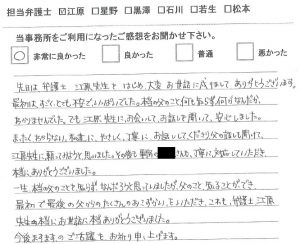 担当弁護士 ☑江原 □星野 □黒澤 □石川 □若生 □松本
当事務所をご利用になったご感想をお聞かせ下さい。
非常に良かった 良かった 普通 悪かった
先日は弁護士 江原先生をはじめ、大変お世話に成りまして、ありがとうございます。
最初は、すごくとても不安でいっぱいでした。本当の父のこと何も
ありませんでした。でも江原先生にお会いしてお話しを聞いて、安心しました。
まったくわからない私達に、やさしく、丁寧に、お話ししてくださり
江原先生に頼ってみようと思いました。その後も さん、丁寧に対応していただき、
本当にありがとうございました。
一生 本当の父のことも知らず 父のこと知ることができ、
最初で最後の父からのたくさんのおくりもいただき、これも、弁護士 江原
先生の本当にお世話に ありがとうございました。
今後ますますのご活躍をお祈り申し上げます。